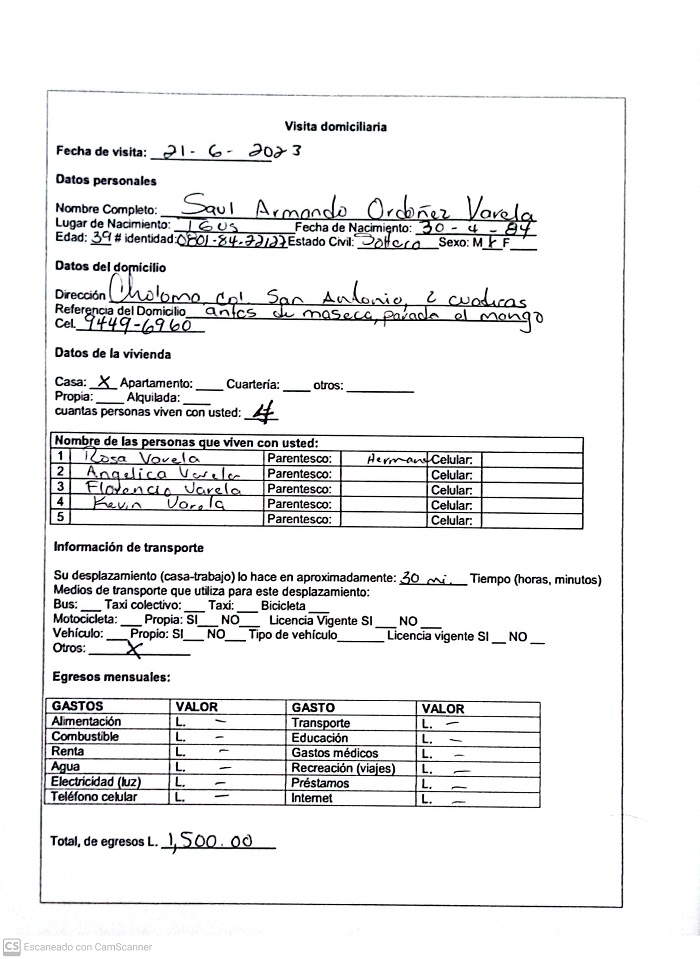 Visita domiciliaria
Fecha de visita: 21-6-2023
Datos personales
Nombre Completo: Saul Armando Ordoñez Varela
Lugar de Nacimiento: TGUS Fecha de Nacimiento: 30-4-84
Edad: 39 # identidad: 0801-84- Estado Civil: Soltero Sexo: M X F
Datos del domicilio
Dirección Choloma, Col. San Antonio, 2 cuadras
Referencia del Domicilio antes de maseca, parada el mango
Cel. 9449-6960
Datos de la vivienda
Casa: X Apartamento: ____ Cuartería: ____ otros: ____
Propia: ____ Alquilada: ____
cuantas personas viven con usted: 4
Nombre de las personas que viven con usted:
1 Rosa Varela Parentesco: Hermana Celular:
2 Angelica Varela Parentesco: Celular:
3 Florencio Varela Parentesco: Celular:
4 Kevin Varela Parentesco: Celular:
5 Parentesco: Celular:
Información de transporte
Su desplazamiento (casa-trabajo) lo hace en aproximadamente: 30 mi. Tiempo (horas, minutos)
Medios de transporte que utiliza para este desplazamiento:
Bus: ___ Taxi colectivo: ___ Taxi: ___ Bicicleta ___
Motocicleta: ___ Propia: SI___ NO___ Licencia Vigente SI ___ NO ___
Vehículo: ___ Propio: SI___ NO___ Tipo de vehículo_______ Licencia vigente SI __ NO __
Otros: X
Egresos mensuales:
GASTOS VALOR GASTO VALOR
Alimentación L. – Transporte L. –
Combustible L. – Educación L. –
Renta L. – Gastos médicos L. –
Agua L. – Recreación (viajes) L. –
Electricidad (luz) L. – Préstamos L. –
Teléfono celular L. – Internet L. –
Total, de egresos L. 1,500.00
CS Escaneado con CamScanner